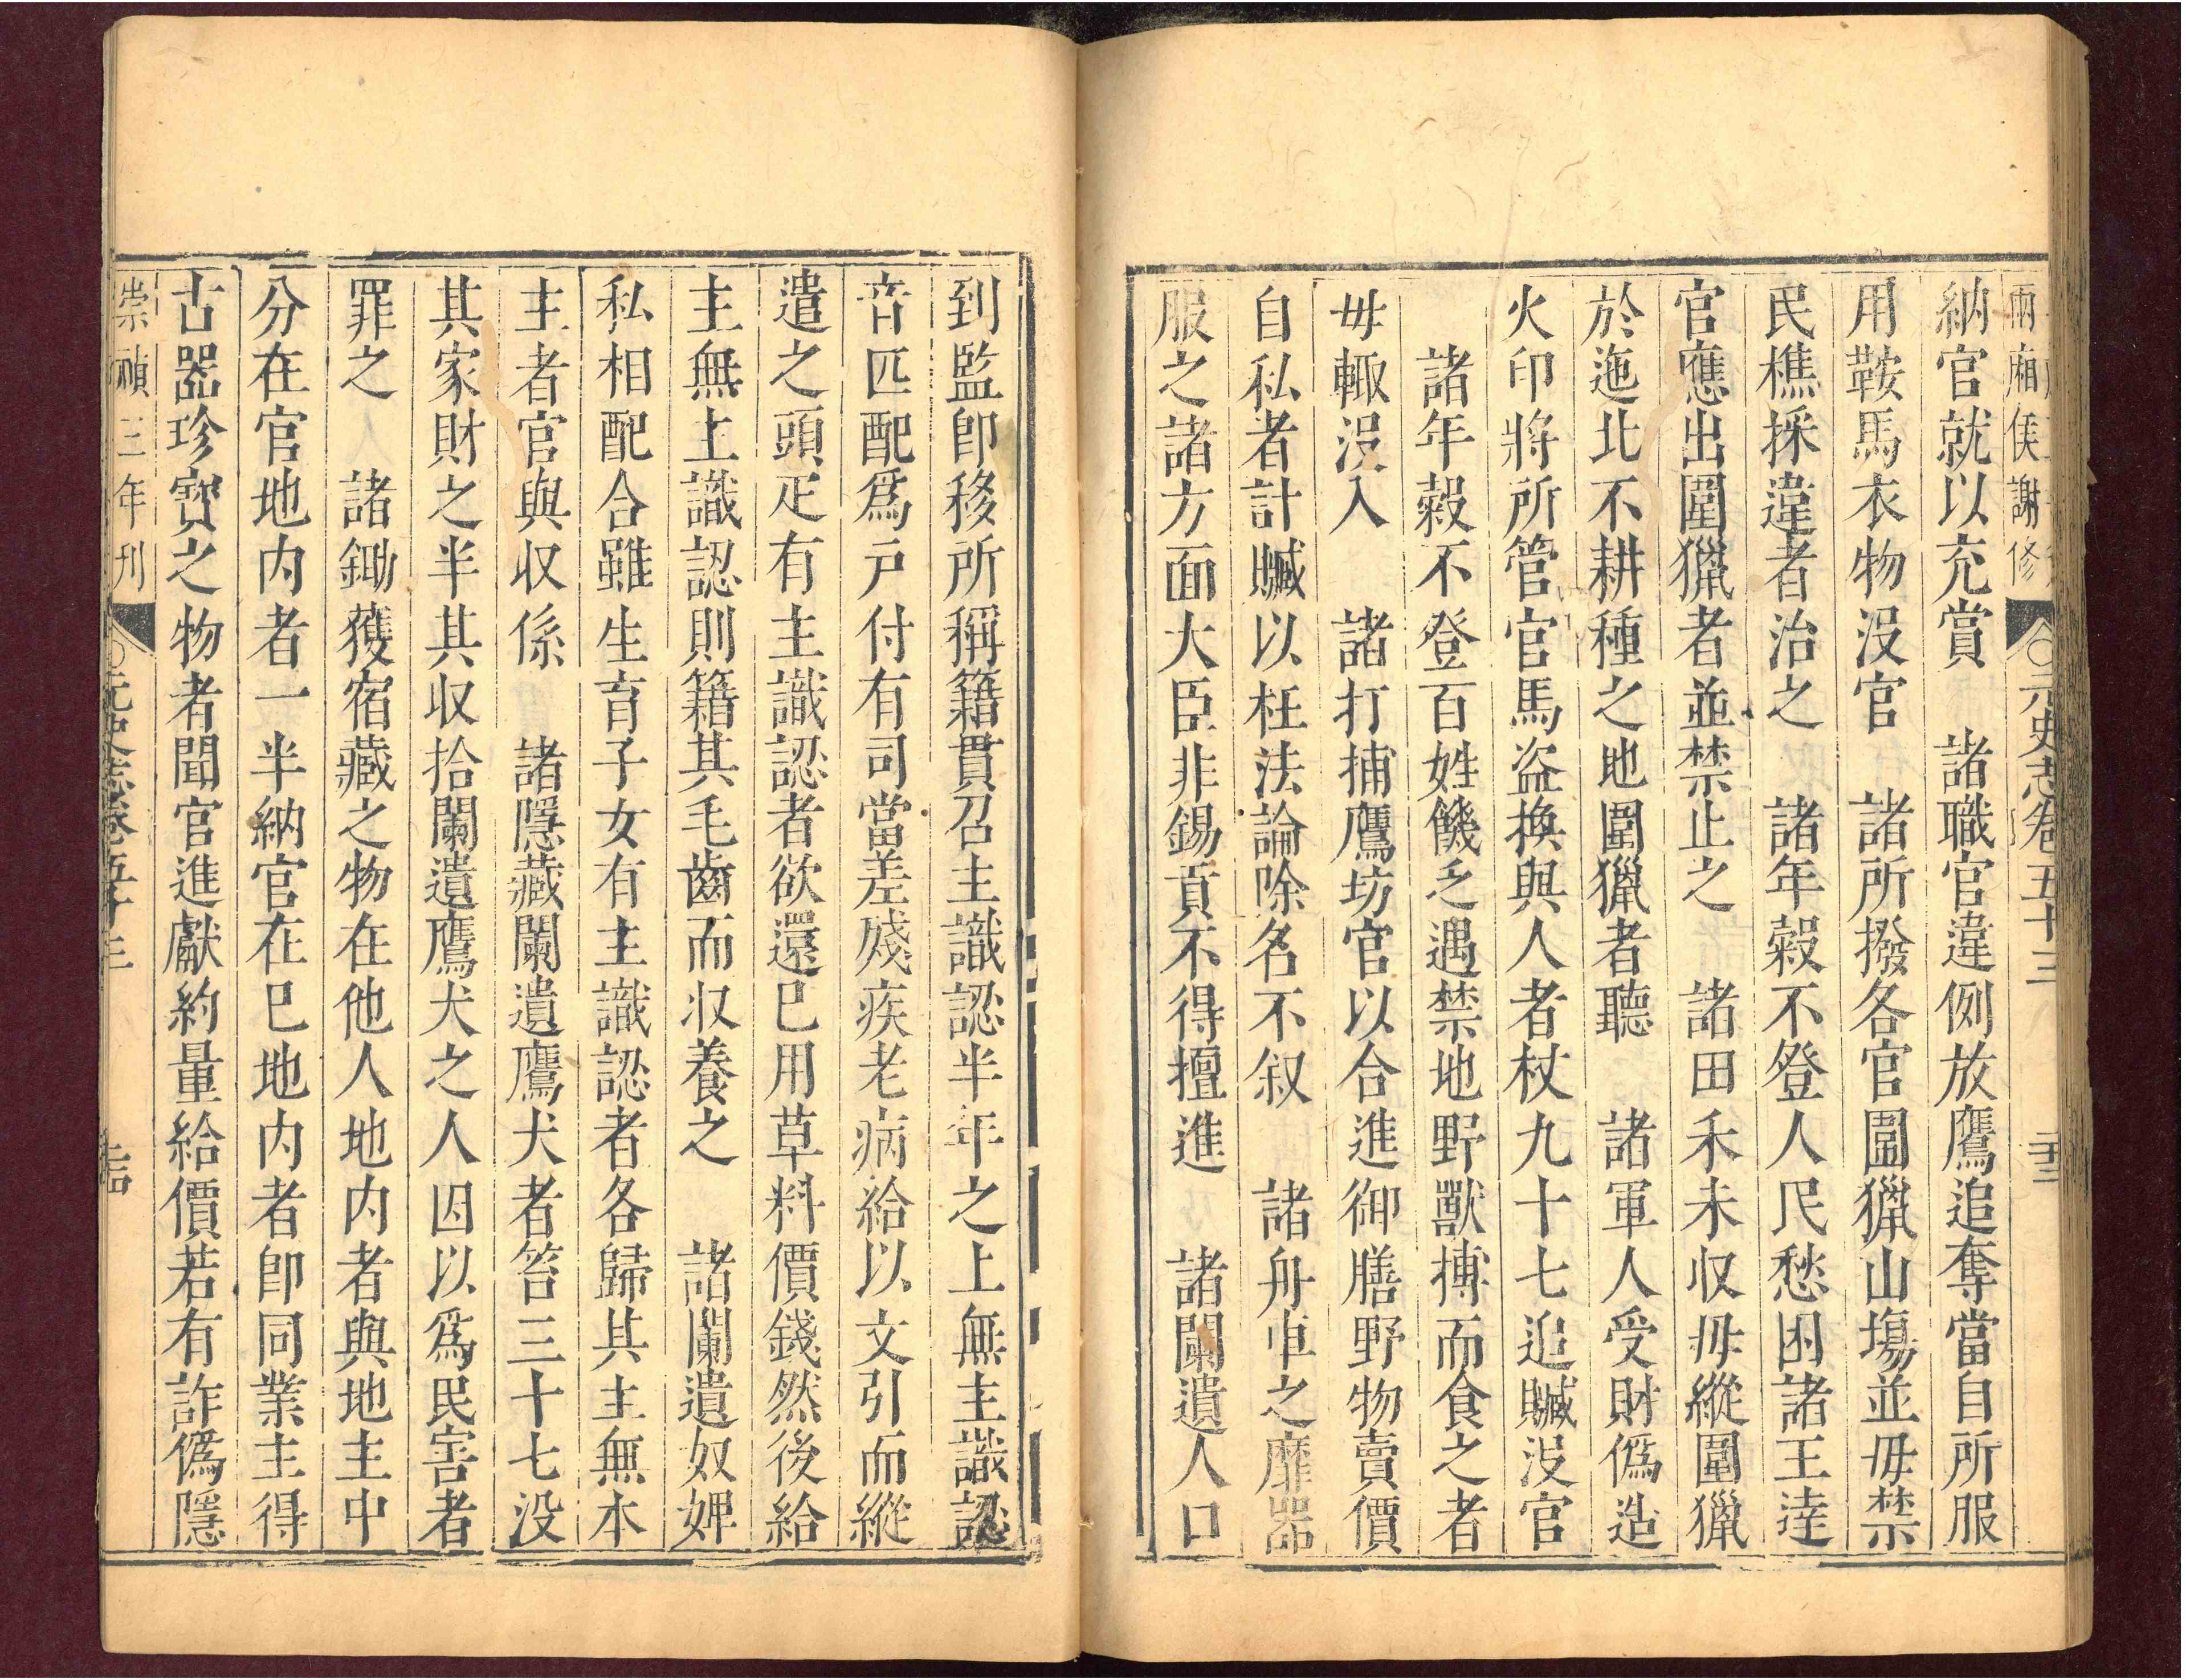 兩廂侯謝修
元史志卷五十三
納官就以充賞　諸職官違例放鷹追奪當自所服
用鞍馬衣物沒官　諸所撥各官圍獵山塲並毋禁
民樵採違者治之　諸年糓不登人民愁困諸王達
官應出圍獵者並禁止之　諸田禾未収毋縱圍獵
於迤北不耕種之地圍獵者聽　諸軍人受財僞造
火印將所管官馬盗換與人者杖九十七追贓沒官
諸年糓不登百姓饑乏遇禁地野獸搏而食之者
毋輙沒入　諸打捕鷹坊官以合進御膳野物賣價
自私者計贓以枉法論除名不叙　諸舟車之靡器
服之諸方面大臣非錫貢不得擅進　諸闌遺人口
到監卽移所稱籍貫召主識認半年之上無主識認
者匹配爲戸付有司當差殘疾老病給以文引而縱
遣之頭疋有主識認者欲還已用草料價錢然後給
主無主識認則籍其毛齒而収養之　諸闌遺奴婢
私相配合雖生育子女有主識認者各歸其主無本
主者官與収係　諸隱藏闌遺鷹犬者笞三十七没
其家財之半其収拾闌遺鷹犬之人因以爲民害者
罪之　諸鋤獲宿藏之物在他人地内者與地主中
分在官地内者一半納官在巳地内者卽同業主得
古器珍寳之物者聞官進獻約量給價若有詐僞隱
崇禎三年刊
元史志卷五十三